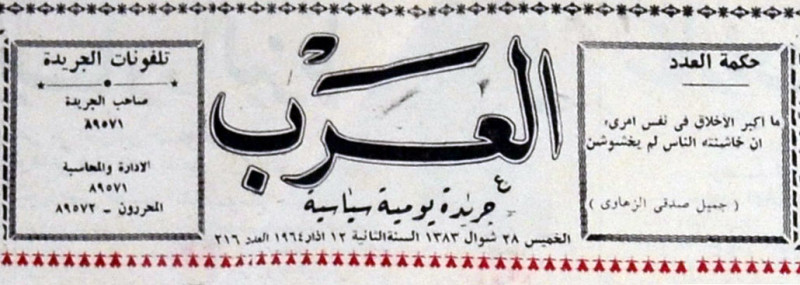 حكمة العدد
ما اكبر الاخلاق في نفس امرىء
ان خاشنته الناس لم يخشوشن
( جميل صدقي الزهاوي )
العرب
جريدة يومية سياسية
الخميس ٢٨ شوال ١٣٨٣ السنة الثانية ١٢ اذار ١٩٦٤ العدد ٢١٦
تلفونات الجريدة
صاحب الجريدة
٨٩٥٧١
الادارة والمحاسبة
٨٩٥٧١
المحررون - ٨٩٥٧٢